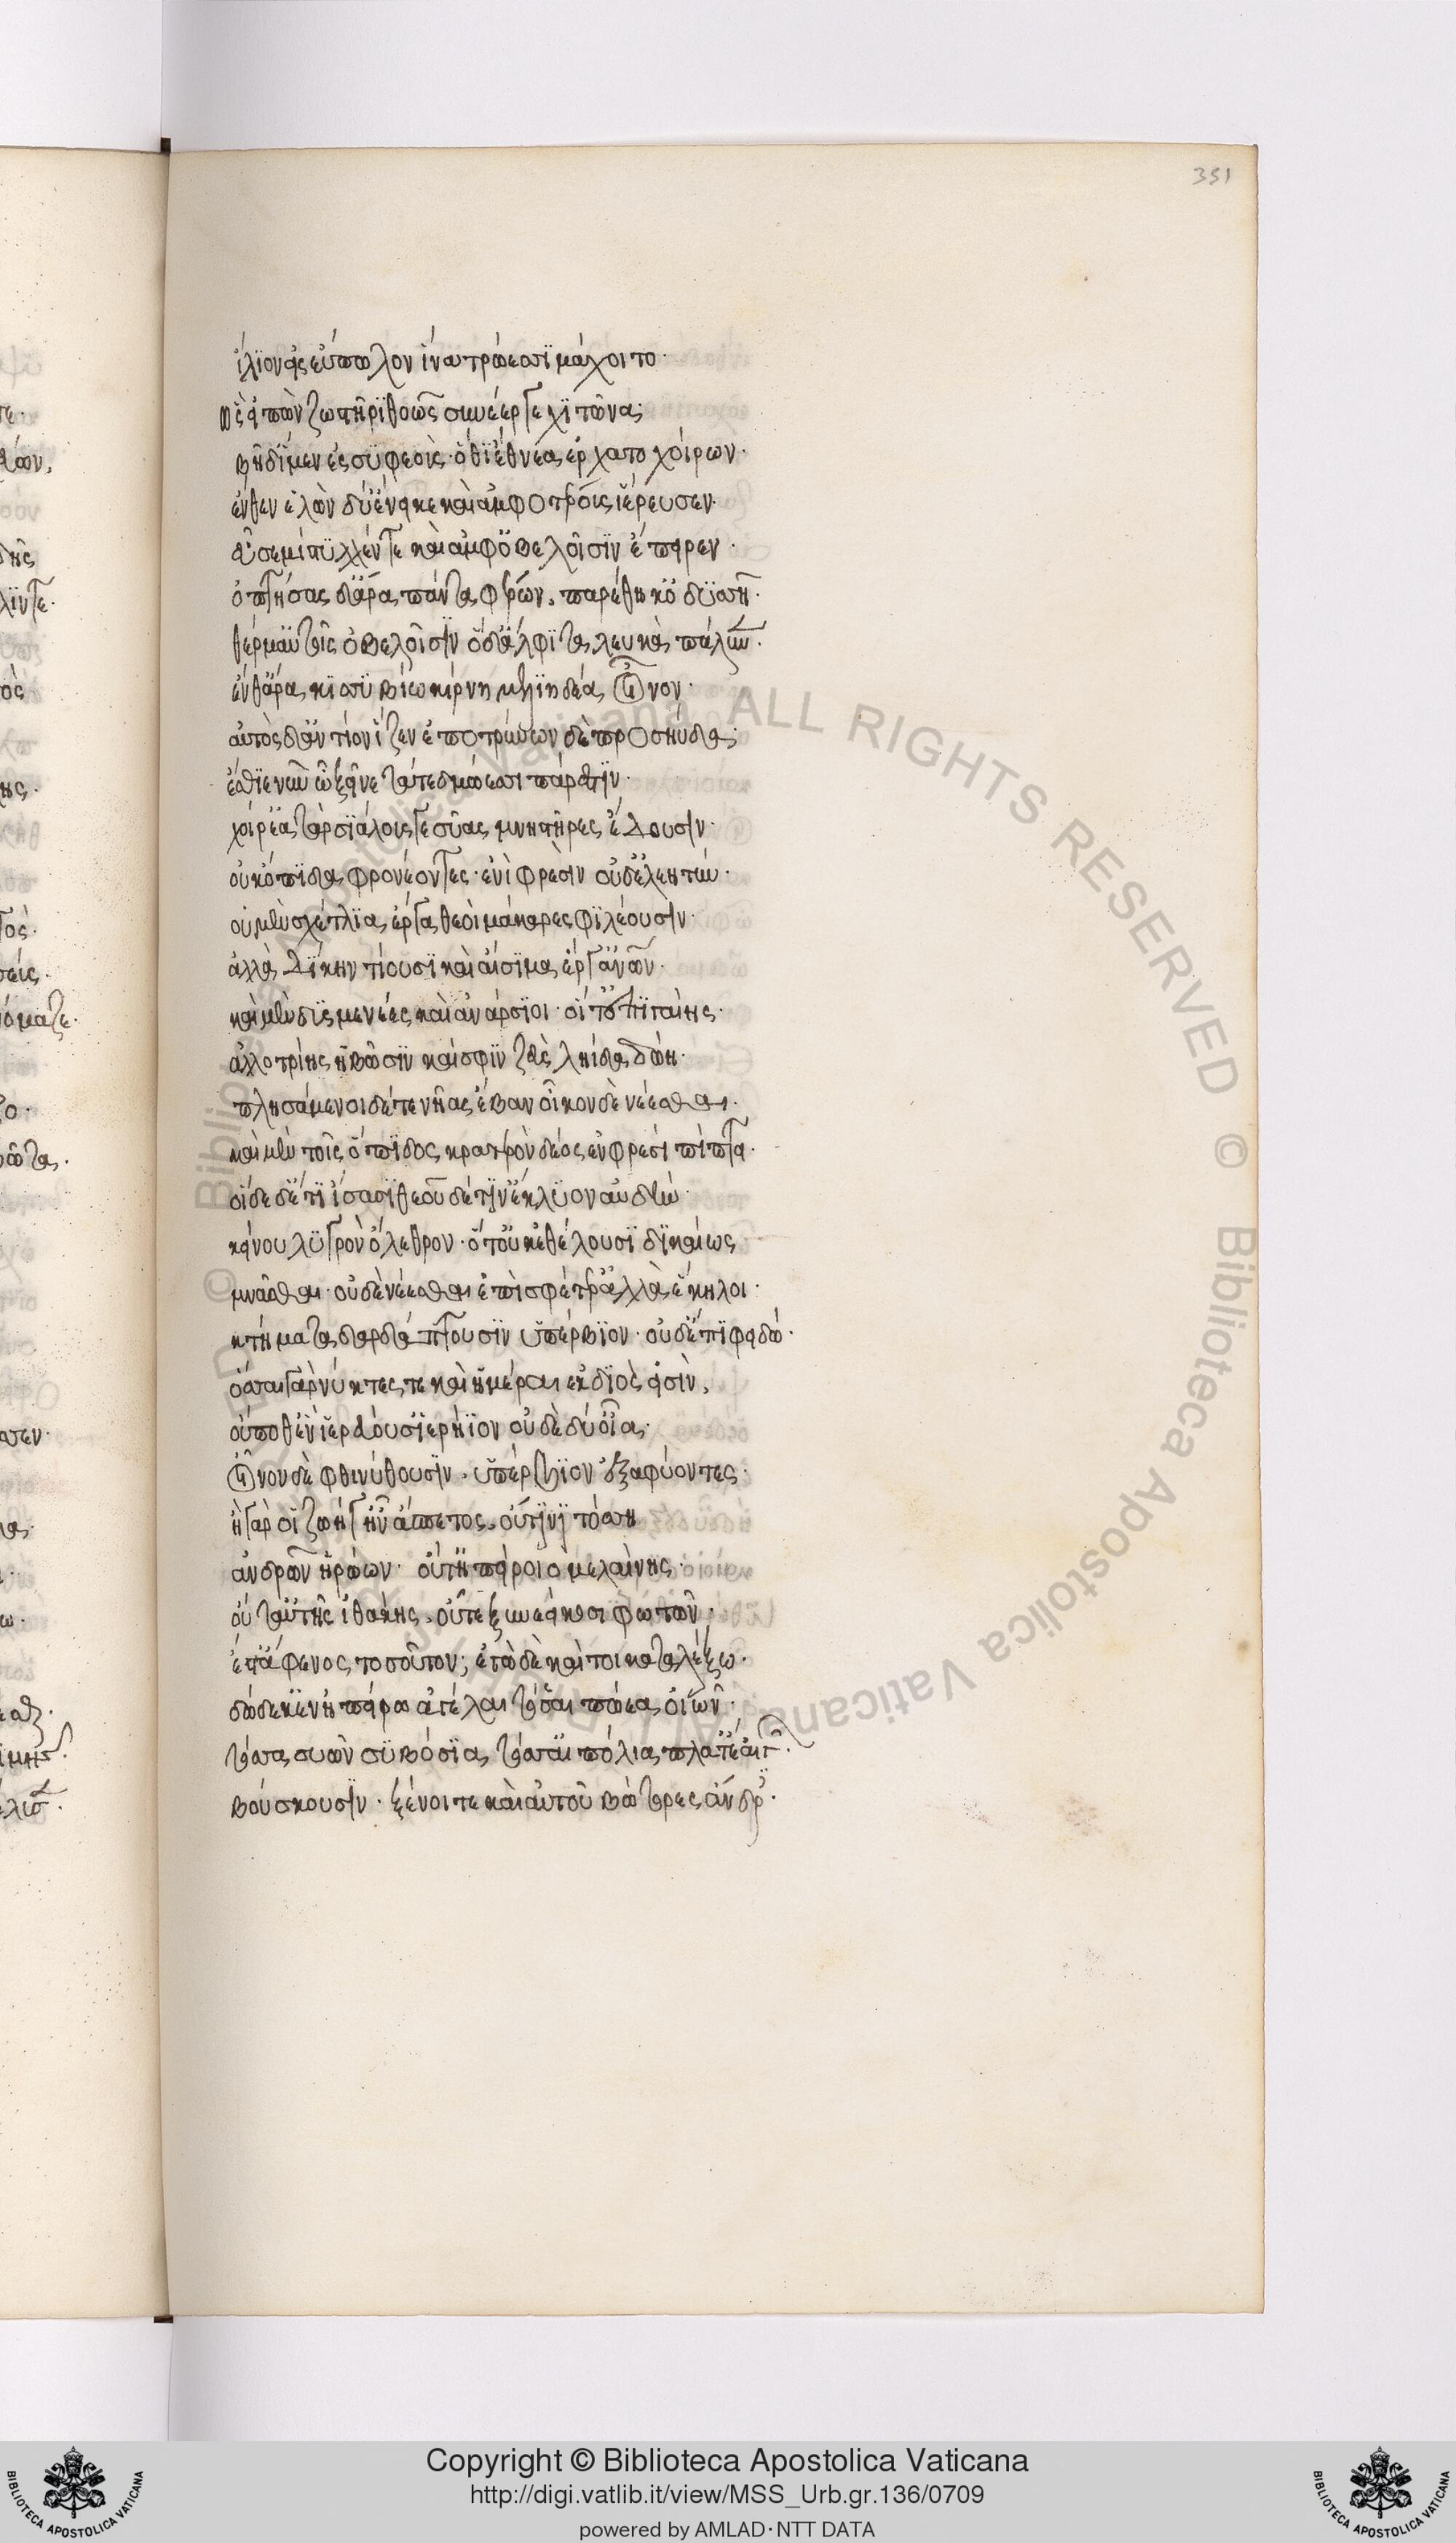 351
ἴλιον εἰς εὔπωλον ἵνα τρώεσσι μάχοιτο·
ὣς εἰπὼν ζωστῆρι θοῶς συνέεργε χιτῶνα·
βῆ δ' ἴμεν ἐς συφεοὺς· ὅθι ἔθνεα ἔρχατο χοίρων·
ἔνθεν ἑλὼν δύ' ἔνεικε καὶ ἀμφοτέρους ἱέρευσεν·
εὗσέ μίστυλλέν τε καὶ ἀμφ' ὀβελοῖσιν ἔπειρεν·
ὀπτήσας δ' ἄρα πάντα φέρων, παρέθηκ' ὀδυσῆι·
θέρμ' αὐτοῖς ὀβελοῖσιν ὁ δ' ἄλφιτα λευκὰ πάλυνεν·
ἐν δ' ἄρα κισσυβίω κίρνη μελιηδέα οἶνον·
αὐτὸς δ' ἀντίον ἷζεν ἐποτρύνων δὲ προσηύδα·
ἔσθιε νῦν ὦ ξεῖνε τάτε δμώεσσι πάρεστιν·
χοίρε'· ἀτὰρ σιάλους γε σύας μνηστῆρες ἔδουσιν·
οὐκ ὄπιδα φρονέοντες· ἐνὶ φρεσὶν οὐδ' ἐλεητύν·
οὐ μὲν σχέτλια ἔργα θεοὶ μάκαρες φιλέουσιν·
ἀλλὰ δίκην τίουσι καὶ αἴσιμα ἔργ' ἀνθρώπων·
καὶ μὲν δυσμενέες καὶ ἀνάρσιοι· οἵ τ' ἐπὶ γαίης·
ἀλλοτρίης βῶσιν καί σφιν ζεὺς ληίδα δώη·
πλησάμενοι δέ τε νῆας ἔβαν οἶκον δὲ νέεσθαι·
καὶ μὲν τοῖς ὄπιδος κρατερὸν δέος ἐν φρεσὶ πίπτει·
οἵδε δέ τι ἴσασι θεοῦ δέ τιν' ἔκλυον αὐδὴν·
κείνου λυγρὸν ὄλεθρον· ὅτ' οὐκ ἐθέλουσι δικαίως
μνᾶσθαι· οὐδὲ νέεσθαι ἐπὶ σφέτερ' ἀλλὰ ἕκηλοι·
κτήματα δαρδάπτουσιν ὑπέρβιον· οὐδ' ἔπι φειδώ·
ὅσσαι γὰρ νύκτες τε καὶ ἡμέραι ἐκ διὸς εἰσὶν,
οὔποθ' ἓν ἱερεύουσ' ἱερήιον οὐδὲ δύ' οἶα·
οἶνον δὲ φθινύθουσιν, ὑπέρβιον ἐξαφύοντες·
ἦ γὰρ οἱ ζωή γ' ἦν ἄσπετος, οὔτινι τόσση
ἀνδρῶν ἡρώων· οὔτ' ἠπείροιο μελαίνης·
οὔτ' αὐτῆς ἰθάκης, οὔτε ξυνεείκοσι φωτῶν·
ἔστ' ἄφενος τοσοῦτον; ἐγὼ δέ καί τοι καταλέξω·
δώδεκ' ἐν ἠπείρω ἀγέλαι τόσαι πώεα οἰῶν·
τόσσα συῶν συβόσια τόσσ' αἰπόλια πλατέ' αἰγῶν·
βόσκουσιν· ξεῖνοί τε καὶ αὐτοῦ βώτορες ἄνδρες·
Copyright © Biblioteca Apostolica Vaticana
http://digi.vatlib.it/view/MSS_Urb.gr.136/0709
powered by AMLAD·NTT DATA